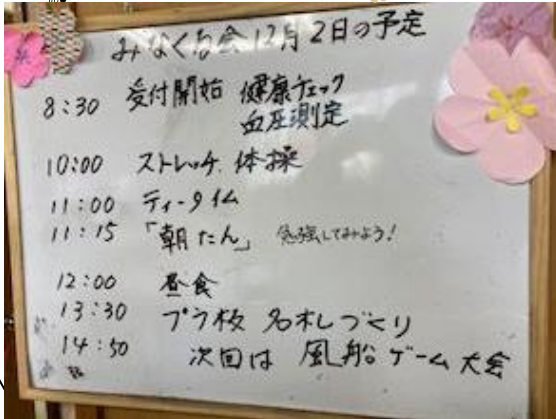 みなくる会12月2日の予定
8:30 受付開始 健康チェック
血圧測定
10:00 ストレッチ 体操
11:00 ティータイム
11:15 「朝たん」 勉強してみよう!
12:00 昼食
13:30 プラ板 名札づくり
14:50 次回は 風船ゲーム大会